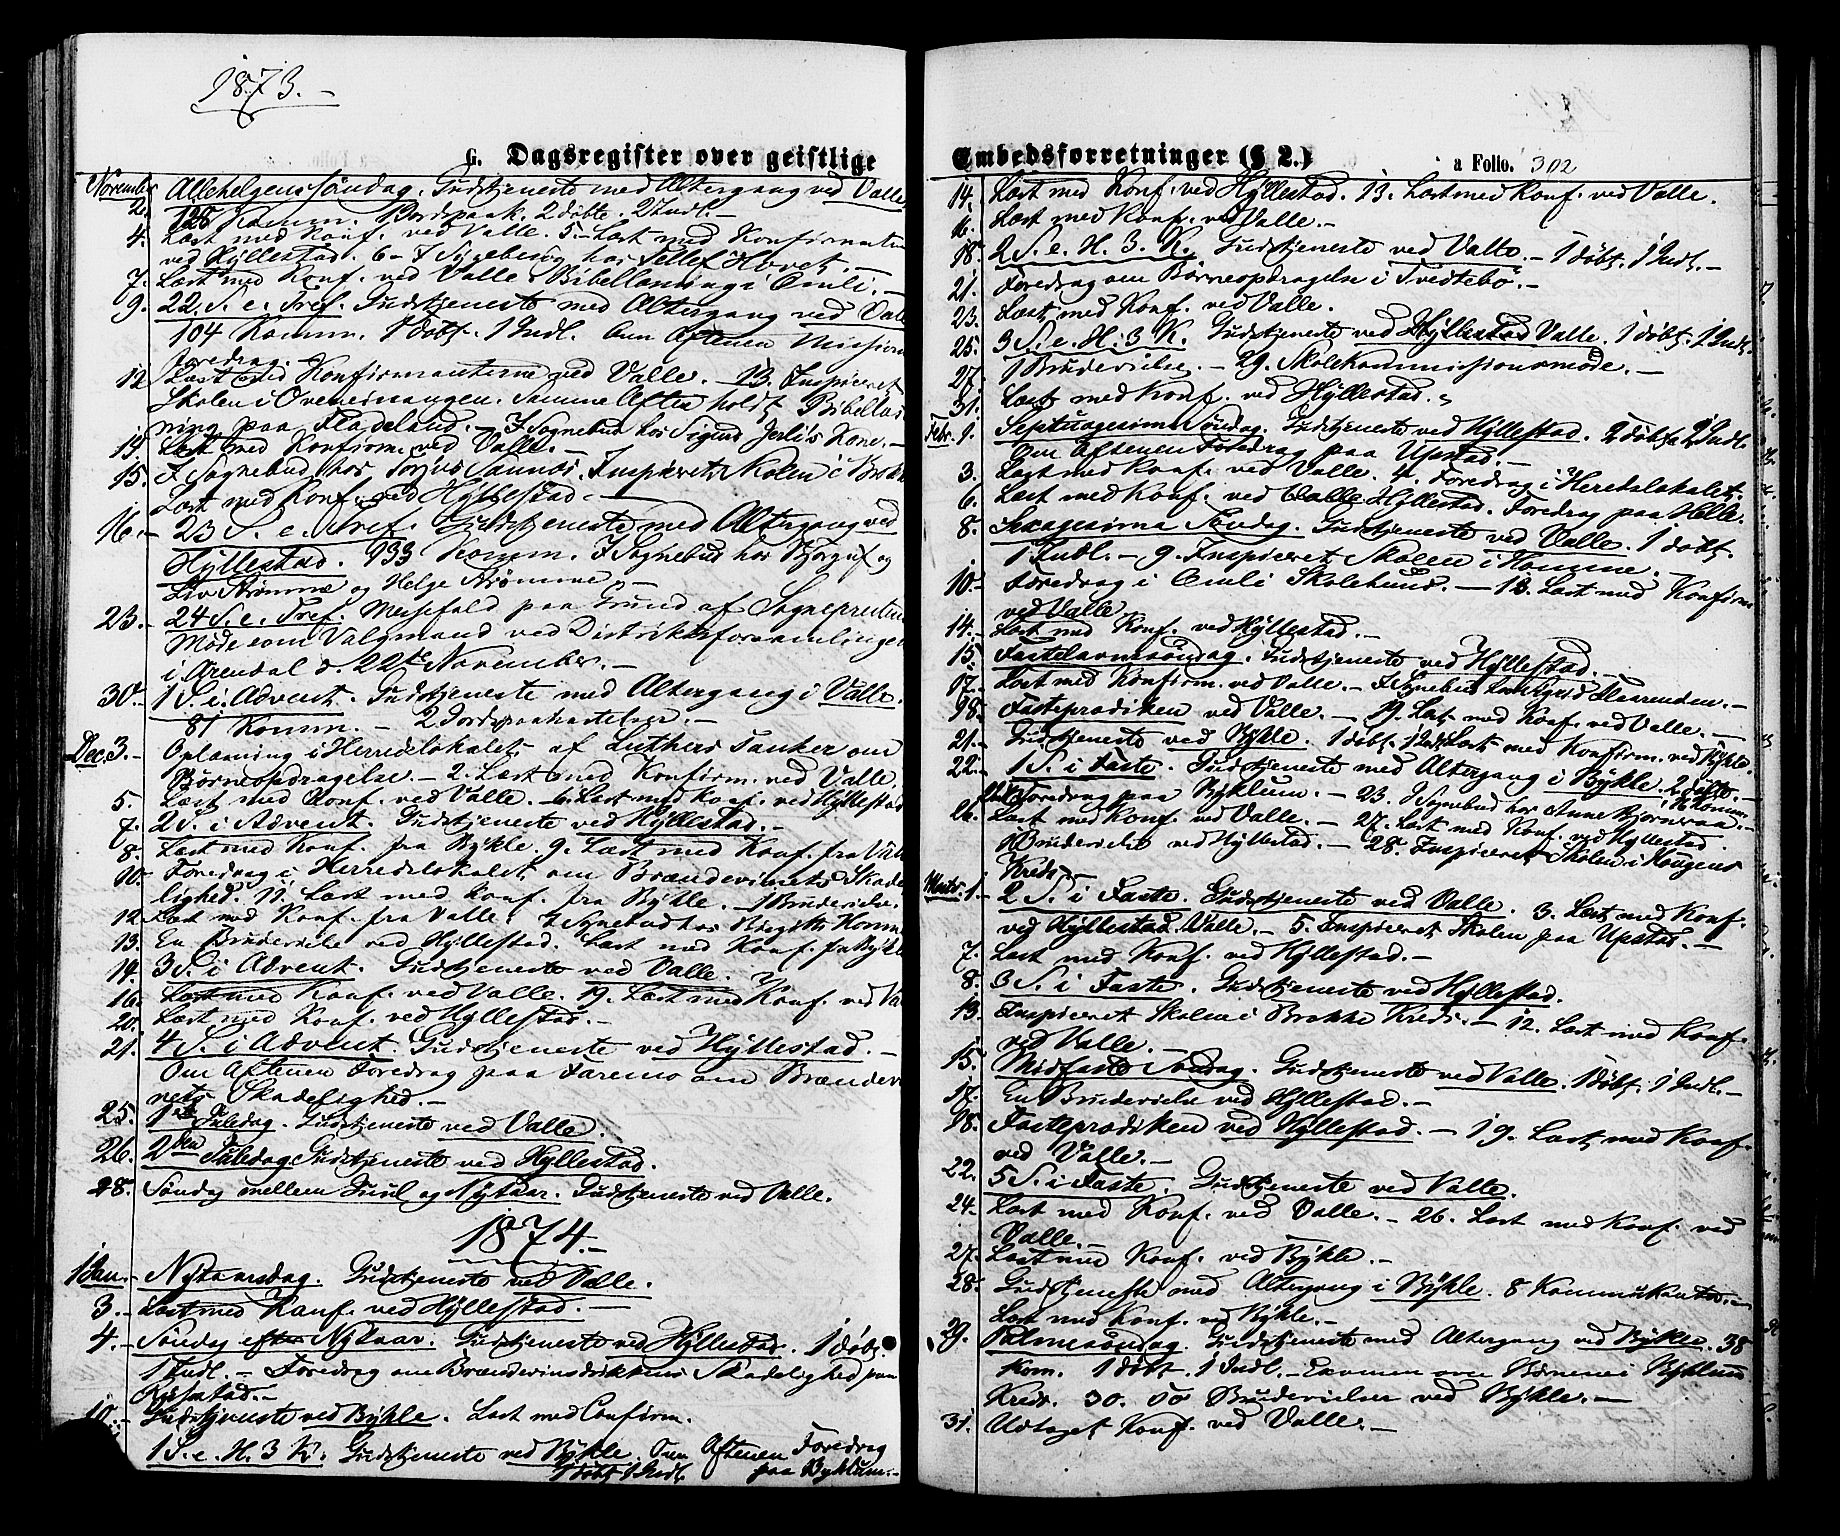 1873.-
G. Dagsregister over geistlige
November Allehelgenssöndag. Gudstjeneste med Altergang ved Valle
2. 128 Komm. Bordspaak. 2 döbte. 2 Indl.-
4. Læst med Konf. ved Valle. 5- Læst med Konfirmanten
ved Hyllestad. 6- I Sygebesög hos Tellef Hovet.-
7. Læst med Konf. ved Valle. Bibellæsning i Omli.-
9. 22. S. e. Tref. Gudstjeneste med Altergang ved Valle
104 Komm. 1 döbt. 1 Indl. Om Aftenen Missions
Foredrag.-
12. Læst med Konfirmanterne ved Valle. - 13. Inspiceret
Skolen i Ovenernangen. Samme Aften holdt Bibellæs
ning paa Fladeland.- I Sognebud hos Sigurd Jerli's Kone.-
14. Læst med Konfirm. ved Valle.-
15. I Sognebud hos Torjus Sannæs. Inspiceret Skolen i Brokk
Læst med Konf. ved Hyllestad.-
16.- 23 S. e. Tref. Gudstjeneste med Altergang ved
Hyllestad. 133 Komm. I Sognebud hos Bjorguf og
Liv Strömme og Helge Strömme.-
23.- 24 S. e. Tref. Messefald paa Grund af Sognepræsten
Möde som Valgmand ved Distriktsforsamlingen
i Arendal d. 22de November.-
30.- 1 S. i. Advent. Gudstjeneste med Altergang i Valle.
81 Komm.- 2 Jordspaakastelser.-
Dec. 3.- Oplæsning i Herredslokalet af Luthers Tanker om
Börneopdragelse.- 2. Læst med Konfirm. ved Valle.
5. Læst med Konf. ved Valle.- 6. Læst med Konf. ved Hyllestad
7. 2 S. i Advent. Gudstjeneste ved Hyllestad.-
8. Læst med Konf. paa Bykle. 9. Læst med Konf. fra Valle
10. Foredrag i Herredslokalet om Brændevinets Skade
lighed. 11. Læst med Konf. fra Bykle.- 1 Brudevielse.
12. Læst med Konf. fra Valle. I Sognebud hos Birgith Homm
13. En Brudevielse ved Hyllestad. Læst med Konf. fra Bykle
14. 3 S. i Advent. Gudstjeneste ved Valle.
16. Læst med Konf. ved Valle. 19. Læst med Konf. ved Va
20. Læst med Konf. ved Hyllestad.-
21. 4 S. i Advent. Gudstjeneste ved Hyllestad.-
Om Aftenen Foredrag paa Faremo om Brændevi
nets Skadelighed.-
25. 1ste Juledag. Gudstjeneste ved Valle.
26. 2den Juledag Gudstjeneste ved Hyllestad.
28. Söndag mellem Juul og Nytaar. Gudstjeneste ved Valle.
1874.-
1 Jan.- Nytaarsdag. Gudstjeneste ved Valle.
3.- Læst med Konf. ved Hyllestad.-
4.- Söndag efter Nytaar. Gudstjeneste ved Hyllestad. 1 döbt
1 Indl.- Foredrag om Brændevinsdrikkens Skadelighed paa
Rysstad.-
10.- Gudstjeneste ved Bykle. Læst med Confirm.
1 S. e. H. 3 K. Gudstjeneste ved Bykle. Om Aftenen Foredrag
1 döbt 1 Indl. paa Byklum.-
Embedsforretninger (§ 2.) a Folio. 302
14. Læst med Konf. ved Hyllestad. 13. Læst med Konf. ved Valle.
16. Læst med Konf. ved Valle.-
18. 2 S. e. H. 3. K. Gudstjeneste ved Valle.- 1 döbt. 1 Indl.-
21. Foredrag om Börneopdragelse i Tvedtebö.-
23. Læst med Konf. ved Valle.
25. 3 S. e. H. 3 K. Gudstjeneste ved Hyllestad Valle. 1 döbt. 1 Indl.
27. 1 Brudevielse.- 29. Skolekommissionsmöde.-
31. Læst med Konf. ved Hyllestad.
Febr. 1. Septuagesima Söndag. Gudstjeneste ved Hyllestad. 2 döbte 2 Indl.
Om Aftenen Foredrag paa Upstad.-
3. Læst med Konf. ved Valle. 4. Foredrag i Heredslokalet.
6. Læst med Konf. ved Valle Hyllestad. Foredrag paa Helle.
8. Sexagesima Söndag. Gudstjeneste ved Valle. 1 döbt.
1 Indl.- 9. Inspiceret Skolen i Homme.-
10.- Foredrag i Omli Skolehuus.- 12. Læst med Konfirm
ved Valle.
14.- Læst med Konf. ved Hyllestad.-
15. Fastelavnssöndag. Gudstjeneste ved Hyllestad.-
17.- Læst med Konfirm. ved Valle.- I Sognebud hos Flaarenden.-
18. Fasteprædiken ved Valle.- 19. Læst med Konf. ved Valle.-
21.- Gudstjeneste ved Bykle. 1 döbt. 1 Indl. Læst med Konfirm. ved Bykle.
22.- 1 S. i Faste. Gudstjeneste med Altergang i Bykle. 2 döbte.-
Foredrag paa Byklum.- 23. I Sognebud hos Anne Bjørnraa.-
26. Læst med Konf. ved Valle.- 27. Læst med Konf. ved Hyllestad.
1 Brudevielse ved Hyllestad.- 28. Inspiceret Skolen i Haugens
Kreds.-
Marts. 1.- 2 S. i Faste. Gudstjeneste ved Valle. 3. Læst med Konf.
ved Hyllestad Valle.- 5. Inspiceret Skolen paa Upstad.-
7. Læst med Konf. ved Hyllestad.-
8. 3 S. i Faste. Gudstjeneste ved Hyllestad.
13. Inspiceret Skolen i Brokke Kreds.- 12. Læst med Konf.
ved Valle.-
15. Midfaste Söndag. Gudstjeneste ved Valle. 1 döbt. 1 Indl.-
17. En Brudevielse ved Hyllestad.-
18. Fasteprædiken ved Hyllestad.- 19. Læst med Konf.
ved Valle.-
22. 5 S. i Faste. Gudstjeneste ved Valle.
24.- Læst med Konf. ved Valle.- 26. Læst med Konf. ved
Valle.-
27. Læst med Konf. ved Bykle.-
28. Gudstjeneste med Altergang i Bykle. 8 Kommunikanter.-
Læst med Konf. ved Bykle.-
29. Palmesöndag. Gudstjeneste med Altergang ved Bykle. 38
Kom. 1 döbt. 1 Indl.- Examen over Börnene i Byklum
Kreds. 30. To Brudevielser ved Bykle.-
31. Udtaget Konf. ved Valle.-